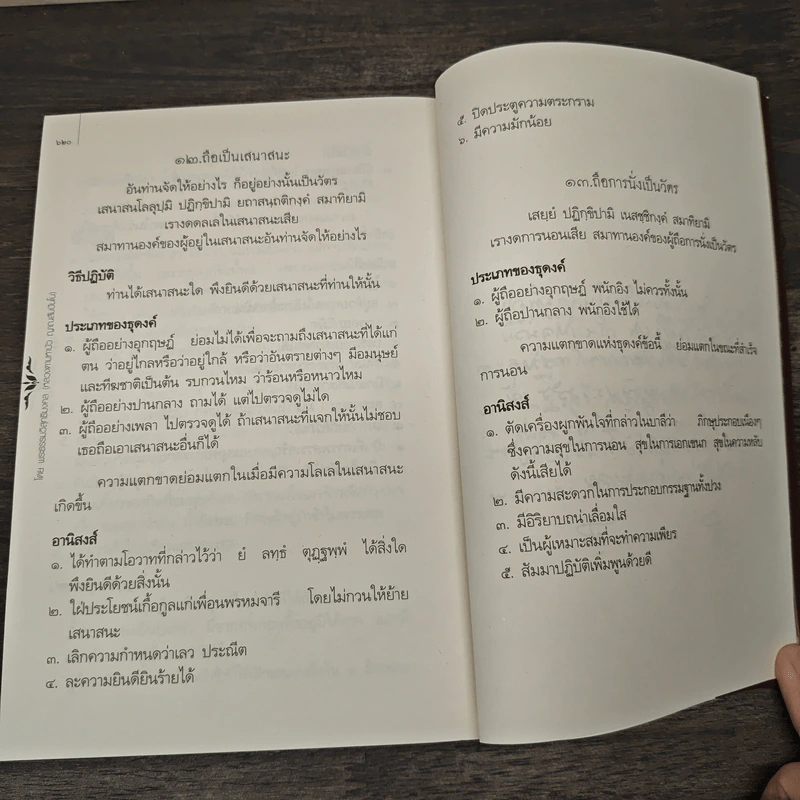 ๖๒๐
๑๒.ถือเป็นเสนาสนะ
อันท่านจัดให้อย่างไร ก็อยู่อย่างนั้นเป็นวัตร
เสนาสนโลลุปฺปํ ปฏิกฺขิปามิ ยถาสนฺถติกงฺคํ สมาทิยามิ
เรางดดลเลในเสนาสนะเสีย
สมาทานองค์ของผู้อยู่ในเสนาสนะอันท่านจัดให้อย่างไร
วิธีปฏิบัติ
ท่านได้เสนาสนะใด พึงยินดีด้วยเสนาสนะที่ท่านให้นั้น
ประเภทของธุดงค์
๑. ผู้ถืออย่างอุกฤษฏ์ ย่อมไม่ได้เพื่อจะถามถึงเสนาสนะที่ได้แก่
ตน ว่าอยู่ไกลหรือว่าอยู่ใกล้ หรือว่าอันตรายต่างๆ มีอมนุษย์
และทีฆชาติเป็นต้น รบกวนไหม ว่าร้อนหรือหนาวไหม
๒. ผู้ถืออย่างปานกลาง ถามได้ แต่ไปตรวจดูไม่ได
๓. ผู้ถืออย่างเพลา ไปตรวจดูได้ ถ้าเสนาสนะที่แจกให้นั้นไม่ชอบ
เธอถือเอาเสนาสนะอื่นก็ได้
ความแตกขาดย่อมแตกในเมื่อมีความโลเลในเสนาสนะ
เกิดขึ้น
อานิสงส์
๑. ได้ทำตามโอวาทที่กล่าวไว้ว่า ยํ ลทฺธํ ตุฏฺฐพฺพํ ได้สิ่งใด
พึงยินดีด้วยสิ่งนั้น
๒. ใฝ่ประโยชน์เกื้อกูลแก่เพื่อนพรหมจารี โดยไม่กวนให้ย้าย
เสนาสนะ
๓. เลิกความกำหนดว่าเลว ประณีต
๔. ละความยินดียินร้ายได้
๕. ปิดประตูความตระกราม
๖. มีความมักน้อย
๑๓.ถือการนั่งเป็นวัตร
เสยฺยํ ปฏิกฺขิปามิ เนสชฺชิกงฺคํ สมาทิยามิ
เรางดการนอนเสีย สมาทานองค์ของผู้ถือการนั่งเป็นวัตร
ประเภทของธุดงค์
๑. ผู้ถืออย่างอุกฤษฏ์ พนักอิง ไม่ควรทั้งนั้น
๒. ผู้ถือปานกลาง พนักอิงใช้ได้
ความแตกขาดแห่งธุดงค์ข้อนี้ ย่อมแตกในขณะที่สำเร็จ
การนอน
อานิสงส์
๑. ตัดเครื่องผูกพันใจที่กล่าวในบาลีว่า ภิกษุประกอบเนืองๆ
ซึ่งความสุขในการนอน สุขในการเอกเขนก สุขในความหลับ
ดังนี้เสียได้
๒. มีความสะดวกในการประกอบกรรมฐานทั้งปวง
๓. มีอิริยาบถน่าเลื่อมใส
๔. เป็นผู้เหมาะสมที่จะทำความเพียร
๕. สัมมาปฏิบัติเพิ่มพูนด้วยดี